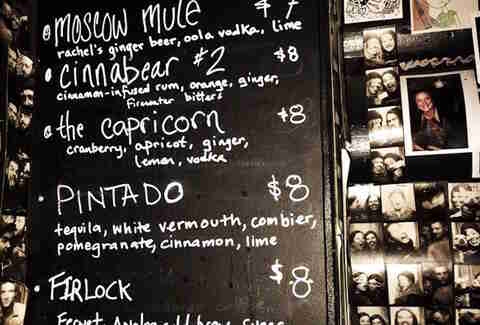 Moscow Mule $7
rachel's ginger beer, oola vodka, lime
cinnabear #2 $8
cinnamon-infused rum, orange, ginger,
firewater bitters
the capricorn $8
cranberry, apricot, ginger,
lemon, vodka
PINTADO $8
tequila, white vermouth, combier,
pomegranate, cinnamon, lime
FIRLOCK $8